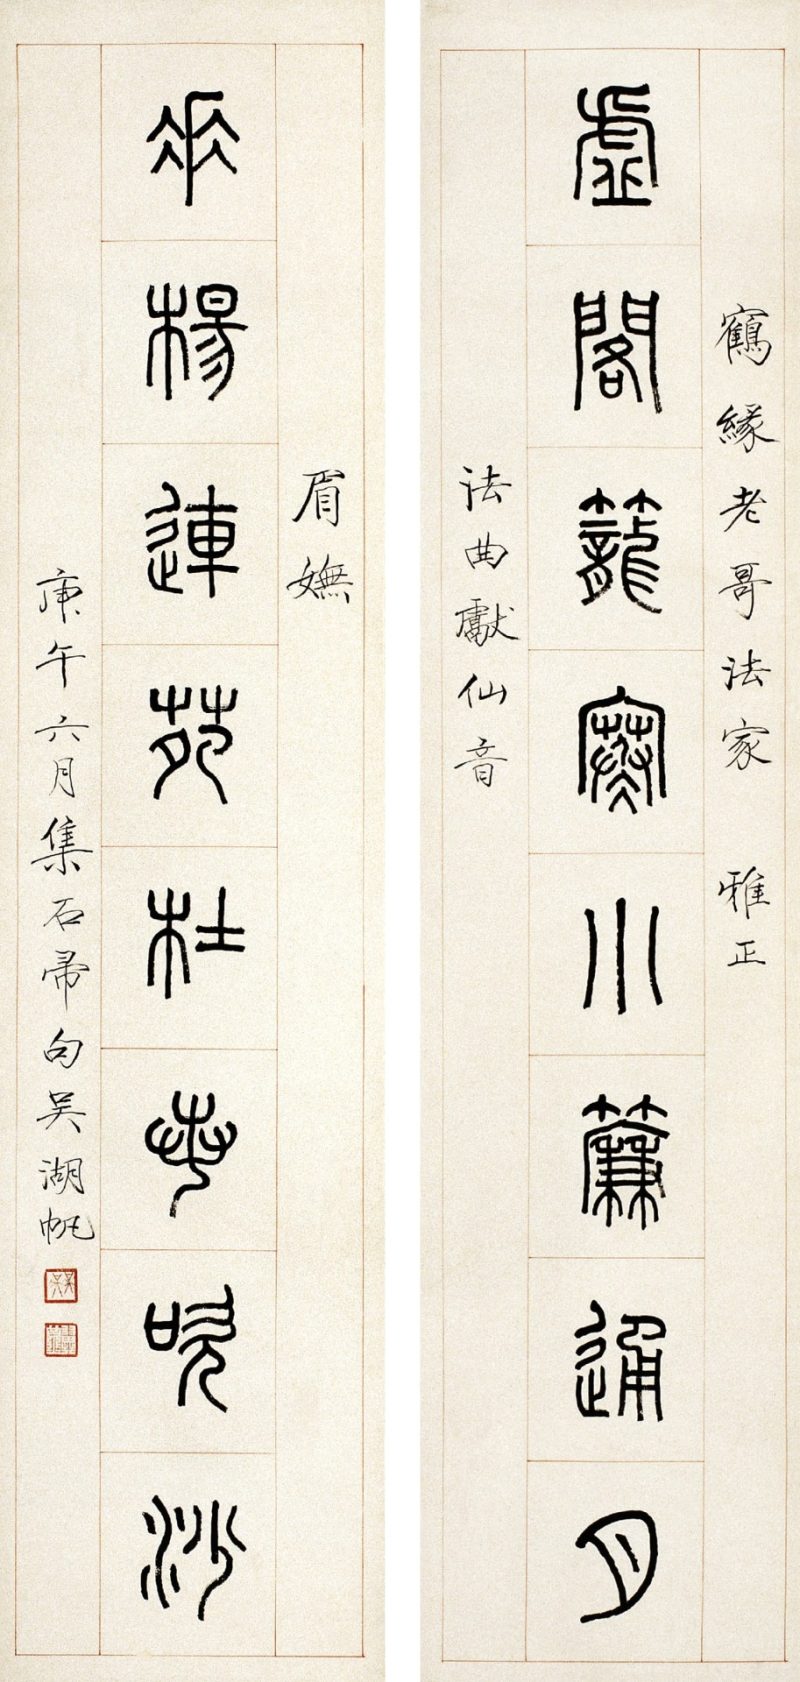 鶴緣老哥法家 雅正
虛閣籠寒小簾通月
法曲獻仙音
眉嫵
垂楊連苑杜若吹沙
庚午六月集石帚句吳湖帆